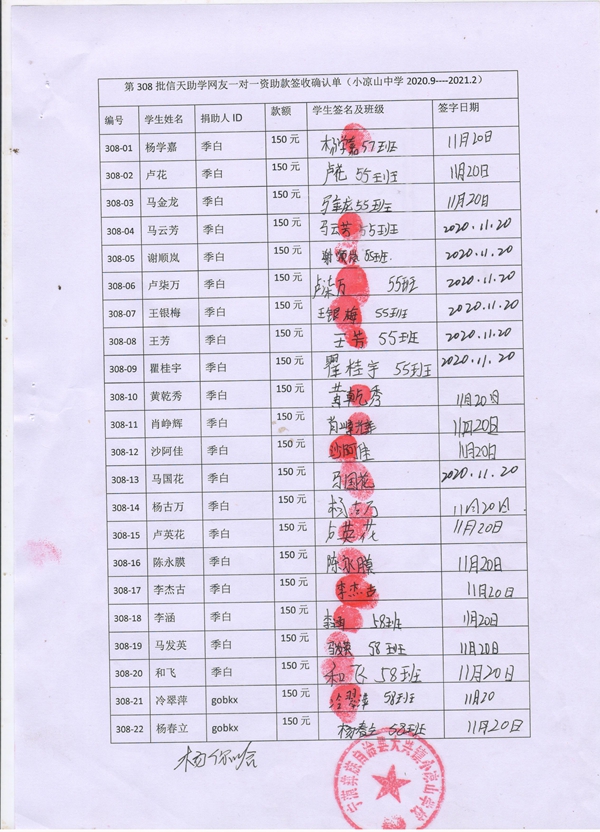 第 308 批信天助学网友一对一资助款签收确认单（小凉山中学 2020.9----2021.2）
编号 学生姓名 捐助人 ID 款额 学生签名及班级 签字日期
308-01 杨学嘉 季白 150 元 杨学嘉 57班 11月20日
308-02 卢花 季白 150 元 卢花 55班 11月20日
308-03 马金龙 季白 150 元 马金龙 55班 11月20日
308-04 马云芳 季白 150 元 马云芳 55班 2020.11.20
308-05 谢顺岚 季白 150 元 谢顺岚 55班 2020.11.20
308-06 卢柒万 季白 150 元 卢柒万 55班 2020.11.20
308-07 王银梅 季白 150 元 王银梅 55班 2020.11.20
308-08 王芳 季白 150 元 王芳 55班 2020.11.20
308-09 瞿桂宇 季白 150 元 瞿桂宇 55班 2020.11.20
308-10 黄乾秀 季白 150 元 黄乾秀 11月20日
308-11 肖峥辉 季白 150 元 肖峥辉 11月20日
308-12 沙阿佳 季白 150 元 沙阿佳 11月20日
308-13 马国花 季白 150 元 马国花 2020.11.20
308-14 杨古万 季白 150 元 杨古万 11月20日
308-15 卢英花 季白 150 元 卢英花 11月20日
308-16 陈永膜 季白 150 元 陈永膜 11月20日
308-17 李杰古 季白 150 元 李杰古 11月20日
308-18 李涵 季白 150 元 李涵 58班 11月20日
308-19 马发英 季白 150 元 马发英 58班 11月20日
308-20 和飞 季白 150 元 和飞 58班 11月20日
308-21 冷翠萍 gobkx 150 元 冷翠萍 58班 11月20
308-22 杨春立 gobkx 150 元 杨春立 58班 11月20日
宁蒗彝族自治县大兴镇小凉山学校